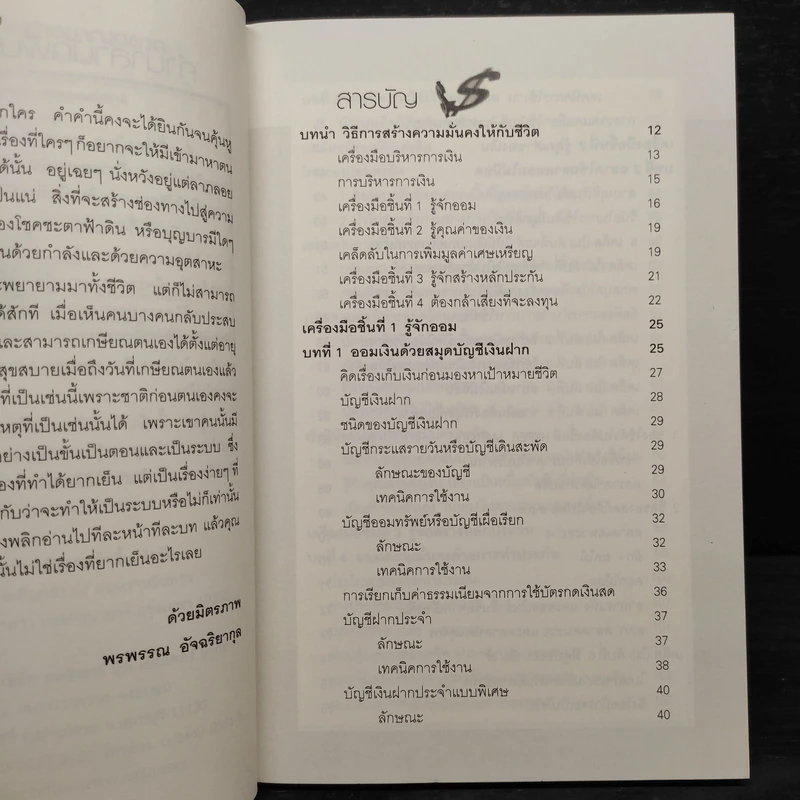 กใคร คำคำนี้คงจะได้ยินกันจนคุ้นหู
เรื่องที่ใครๆ ก็อยากจะให้มีเข้ามาหาตน
ด้นั้น อยู่เฉยๆ นั่งหวังอยู่แต่ลาภลอย
ป็นแน่ สิ่งที่จะสร้างช่องทางไปสู่ความ
องโชคชะตาฟ้าดิน หรือบุญบารมีใดๆ
นด้วยกำลังและด้วยความอุตสาหะ
ะพยายามมาทั้งชีวิต แต่ก็ไม่สามารถ
ด้สักที เมื่อเห็นคนบางคนกลับประสบ
และสามารถเกษียณตนเองได้ตั้งแต่อายุ
สุขสบายเมื่อถึงวันที่เกษียณตนเองแล้ว
ที่เป็นเช่นนี้เพราะชาติก่อนตนเองคงจะ
เหตุที่เป็นเช่นนั้นได้ เพราะเขาคนนั้นมี
อย่างเป็นขั้นเป็นตอนและเป็นระบบ ซึ่ง
องที่ทำได้ยากเย็น แต่เป็นเรื่องง่ายๆ ที่
กับว่าจะทำให้เป็นระบบหรือไม่ก็เท่านั้น
งพลิกอ่านไปทีละหน้าทีละบท แล้วคุณ
นั้นไม่ใช่เรื่องที่ยากเย็นอะไรเลย
ด้วยมิตรภาพ
พรพรรณ อัจฉริยากุล
สารบัญ
บทนำ วิธีการสร้างความมั่นคงให้กับชีวิต 12
เครื่องมือบริหารการเงิน 13
การบริหารการเงิน 15
เครื่องมือชิ้นที่ 1 รู้จักออม 16
เครื่องมือชิ้นที่ 2 รู้คุณค่าของเงิน 19
เคล็ดลับในการเพิ่มมูลค่าเศษเหรียญ 19
เครื่องมือชิ้นที่ 3 รู้จักสร้างหลักประกัน 21
เครื่องมือชิ้นที่ 4 ต้องกล้าเสี่ยงที่จะลงทุน 22
เครื่องมือชิ้นที่ 1 รู้จักออม 25
บทที่ 1 ออมเงินด้วยสมุดบัญชีเงินฝาก 25
คิดเรื่องเก็บเงินก่อนมองหาเป้าหมายชีวิต 27
บัญชีเงินฝาก 28
ชนิดของบัญชีเงินฝาก 29
บัญชีกระแสรายวันหรือบัญชีเดินสะพัด 29
ลักษณะของบัญชี 29
เทคนิคการใช้งาน 30
บัญชีออมทรัพย์หรือบัญชีเผื่อเรียก 32
ลักษณะ 32
เทคนิคการใช้งาน 33
การเรียกเก็บค่าธรรมเนียมจากการใช้บัตรกดเงินสด 36
บัญชีฝากประจำ 37
ลักษณะ 37
เทคนิคการใช้งาน 38
บัญชีเงินฝากประจำแบบพิเศษ 40
ลักษณะ 40